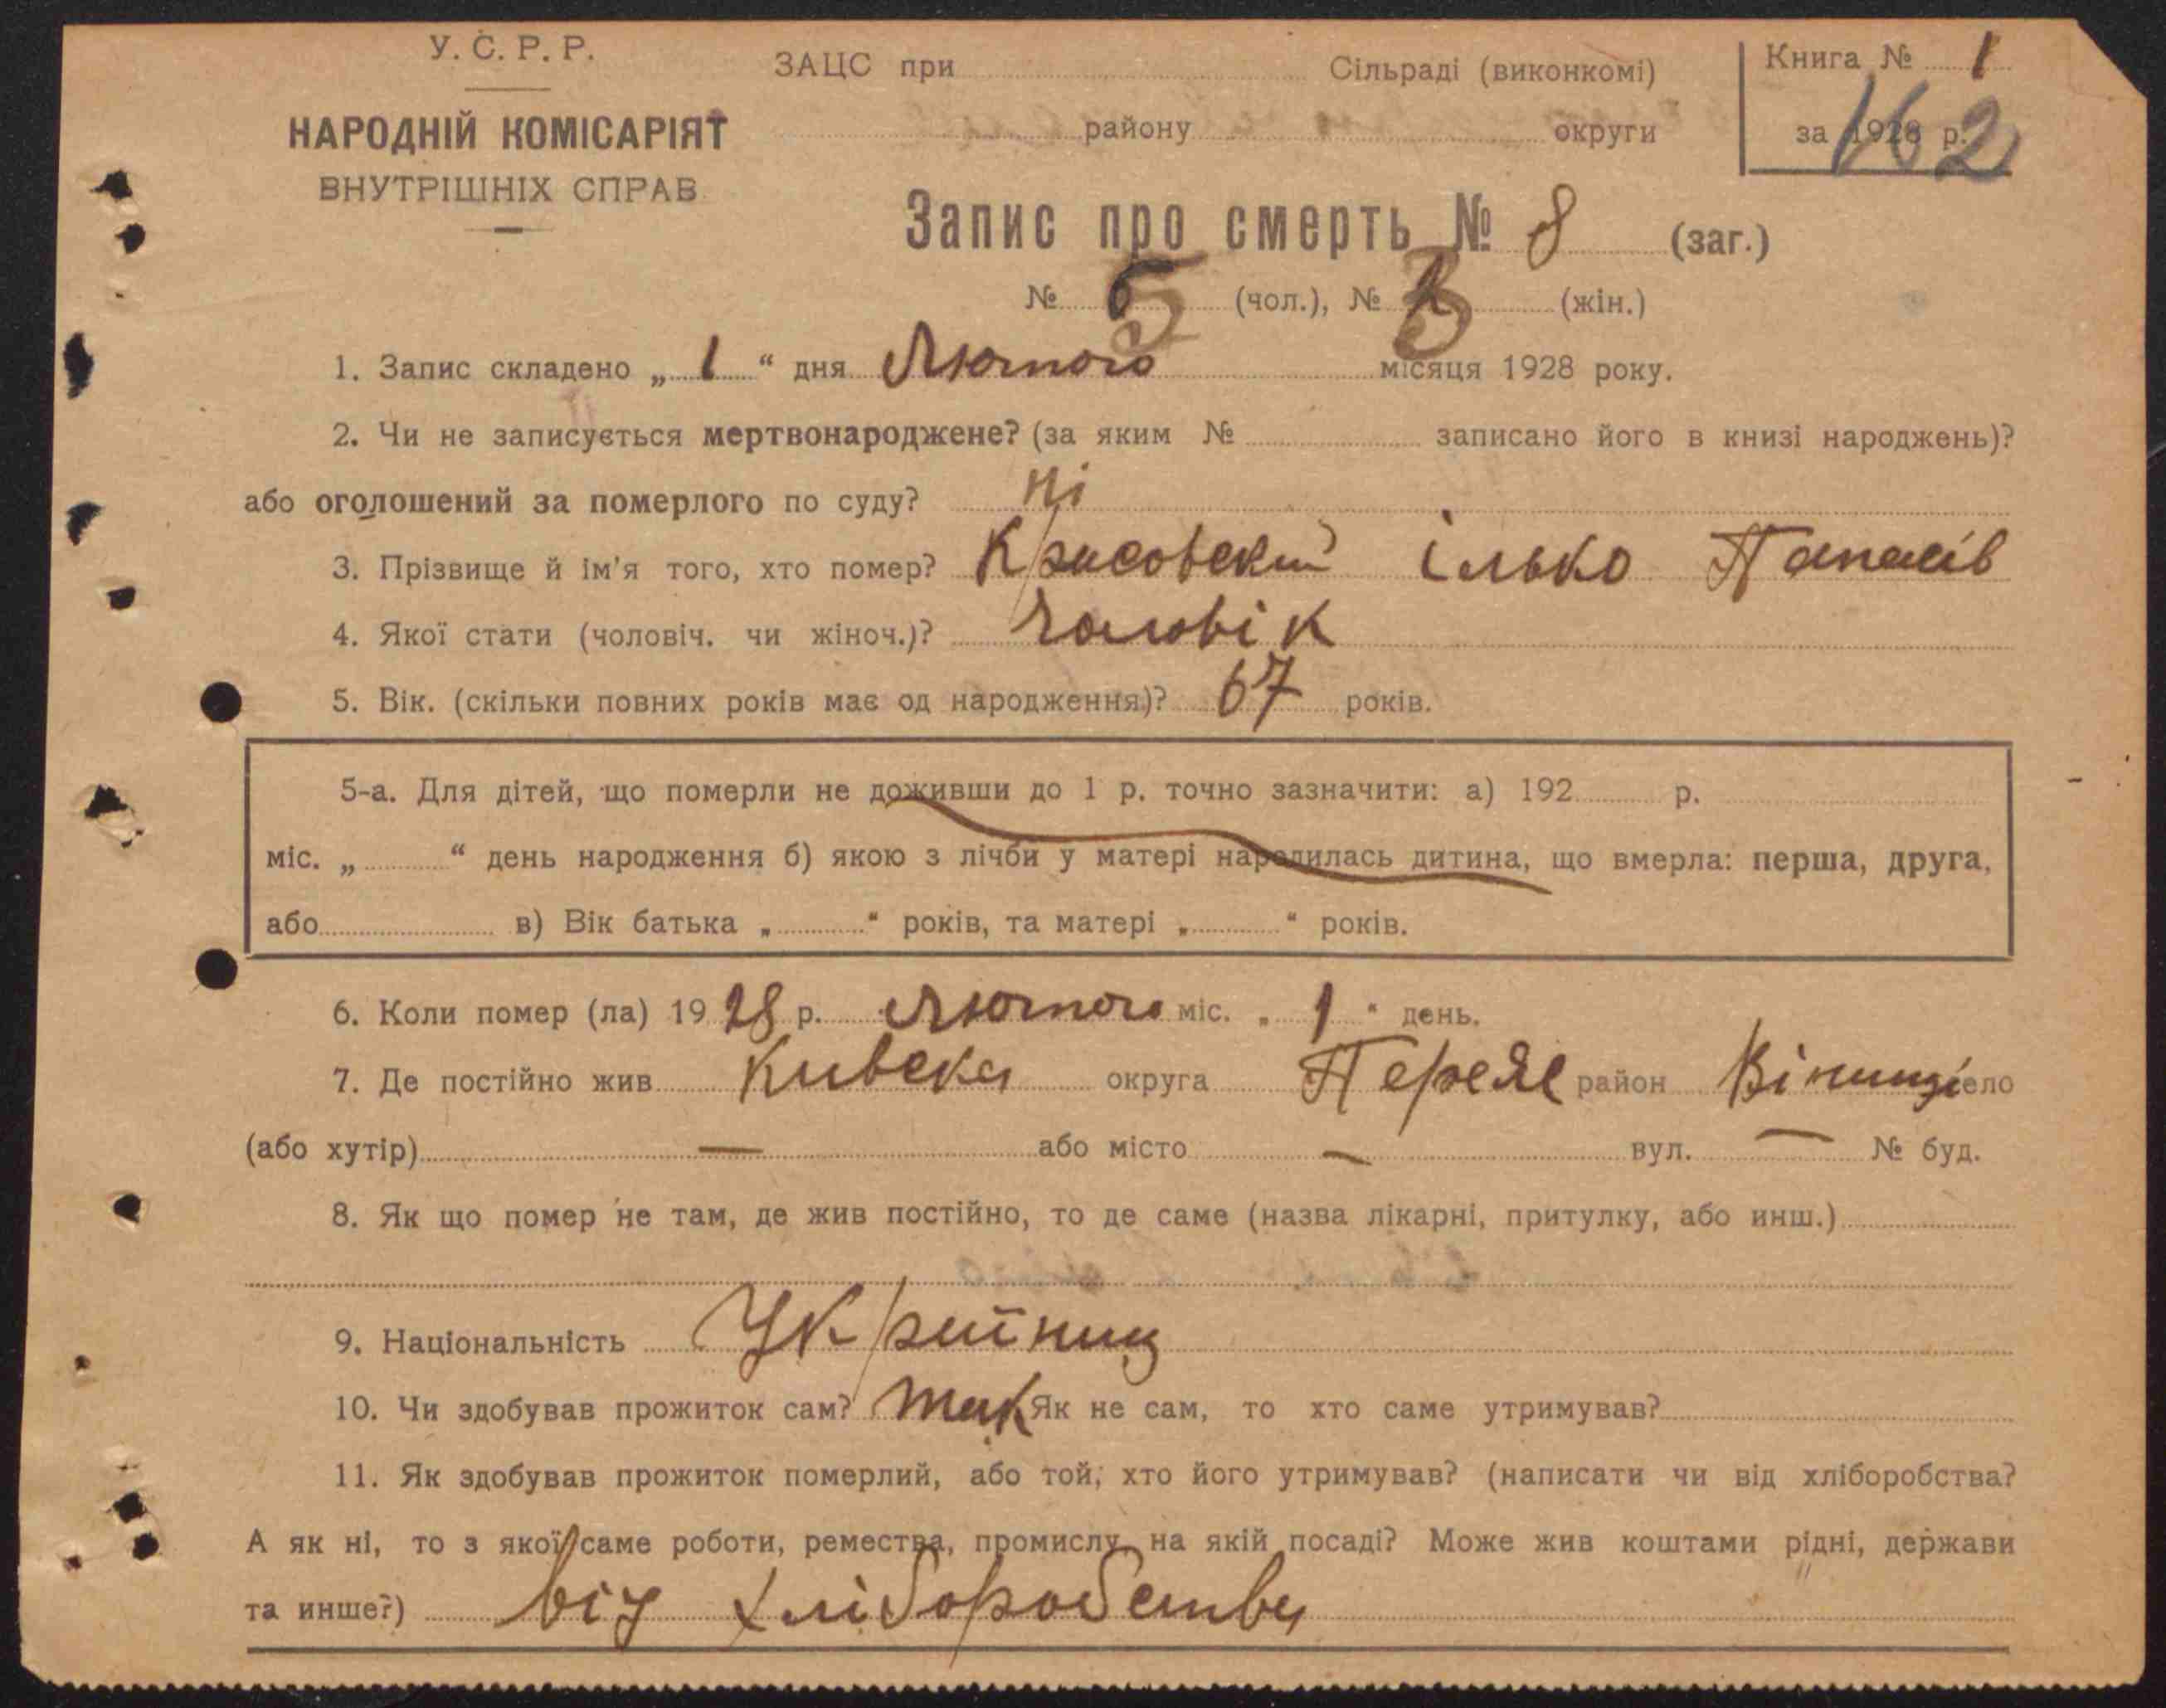 У. С. Р. Р.
НАРОДНІЙ КОМІСАРІЯТ
ВНУТРІШНІХ СПРАВ
ЗАЦС при Сільраді (виконкомі)
району округи
Книга № 1
за 1928 р.
162
Запис про смерть № 8 (заг.)
№ 5 (чол.), № 3 (жін.)
1. Запис складено „ 1 “ дня Лютого місяця 1928 року.
2. Чи не записується мертвонароджене? (за яким № записано його в книзі народжень)?
або оголошений за померлого по суду? ні
3. Прізвище й ім'я того, хто помер? Красовский Ілько
4. Якої стати (чоловіч. чи жіноч.)? Чоловік
5. Вік. (скільки повних років має од народження)? 67 років.
5-а. Для дітей, що померли не доживши до 1 р. точно зазначити: а) 192 р.
міс. „ “ день народження б) якою з лічби у матері народилась дитина, що вмерла: перша, друга,
або в) Вік батька „ “ років, та матері „ “ років.
6. Коли помер (ла) 1928 р. Лютого міс. „ 1 “ день.
7. Де постійно жив Кивска округа Переяс район Вінинці село
(або хутір) — або місто — вул. — № буд.
8. Як що помер не там, де жив постійно, то де саме (назва лікарні, притулку, або инш.)
9. Національність Украйниц
10. Чи здобував прожиток сам? так Як не сам, то хто саме утримував?
11. Як здобував прожиток померлий, або той, хто його утримував? (написати чи від хліборобства?
А як ні, то з якої саме роботи, ремества, промислу, на якій посаді? Може жив коштами рідні, держави
та инше?) від хліборобства